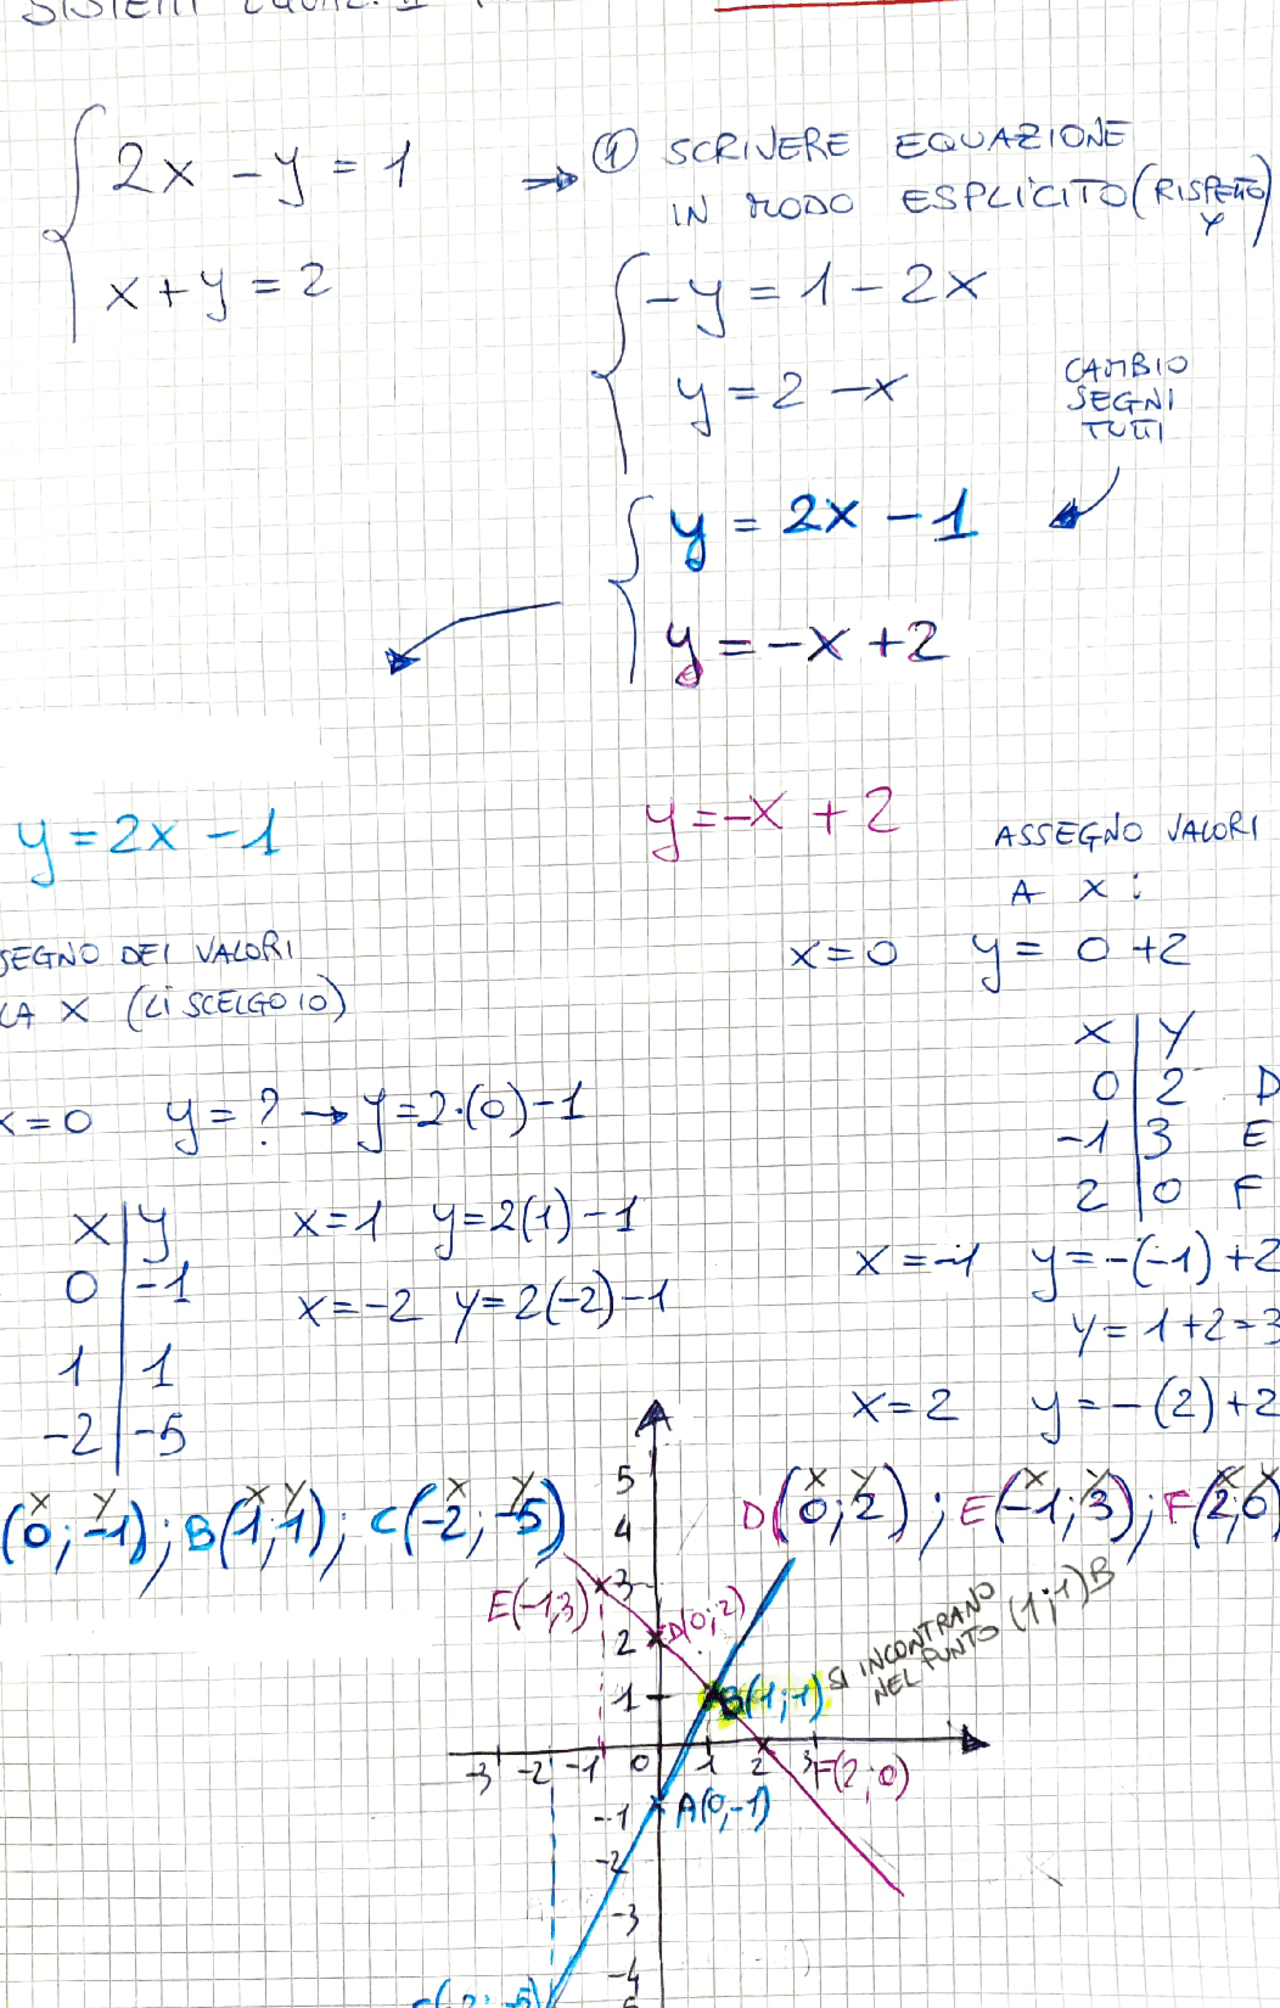 2x - y = 1
x + y = 2
① SCRIVERE EQUAZIONE
IN MODO ESPLICITO (RISPETTO
Y)
-y = 1 - 2x
y = 2 - x
CAMBIO
SEGNI
TUTTI
y = 2x - 1
y = -x + 2
y = 2x - 1
y = -x + 2
SEGNO DEI VALORI
LA X (LI SCELGO IO)
x = 0 y = ? → y = 2·(0) - 1
x | y
0 | -1
1 | 1
-2 | -5
x = 1 y = 2(1) - 1
x = -2 y = 2(-2) - 1
ASSEGNO VALORI
A X :
x = 0 y = 0 + 2
X | Y
0 | 2 D
-1 | 3 E
2 | 0 F
x = -1 y = -(-1) + 2
y = 1 + 2 = 3
x = 2 y = -(2) + 2
x y x y x y
(0; -1); B(1; 1); C(-2; -5)
x y x y x y
D(0; 2); E(-1; 3); F(2; 0)
5
4
3
2
1
-3 -2 -1 0 1 2 3
-1
-2
-3
-4
E(-1,3)
D(0;2)
B(1;1)
SI INCONTRANO
NEL PUNTO (1;1) B
F(2;0)
A(0,-1)